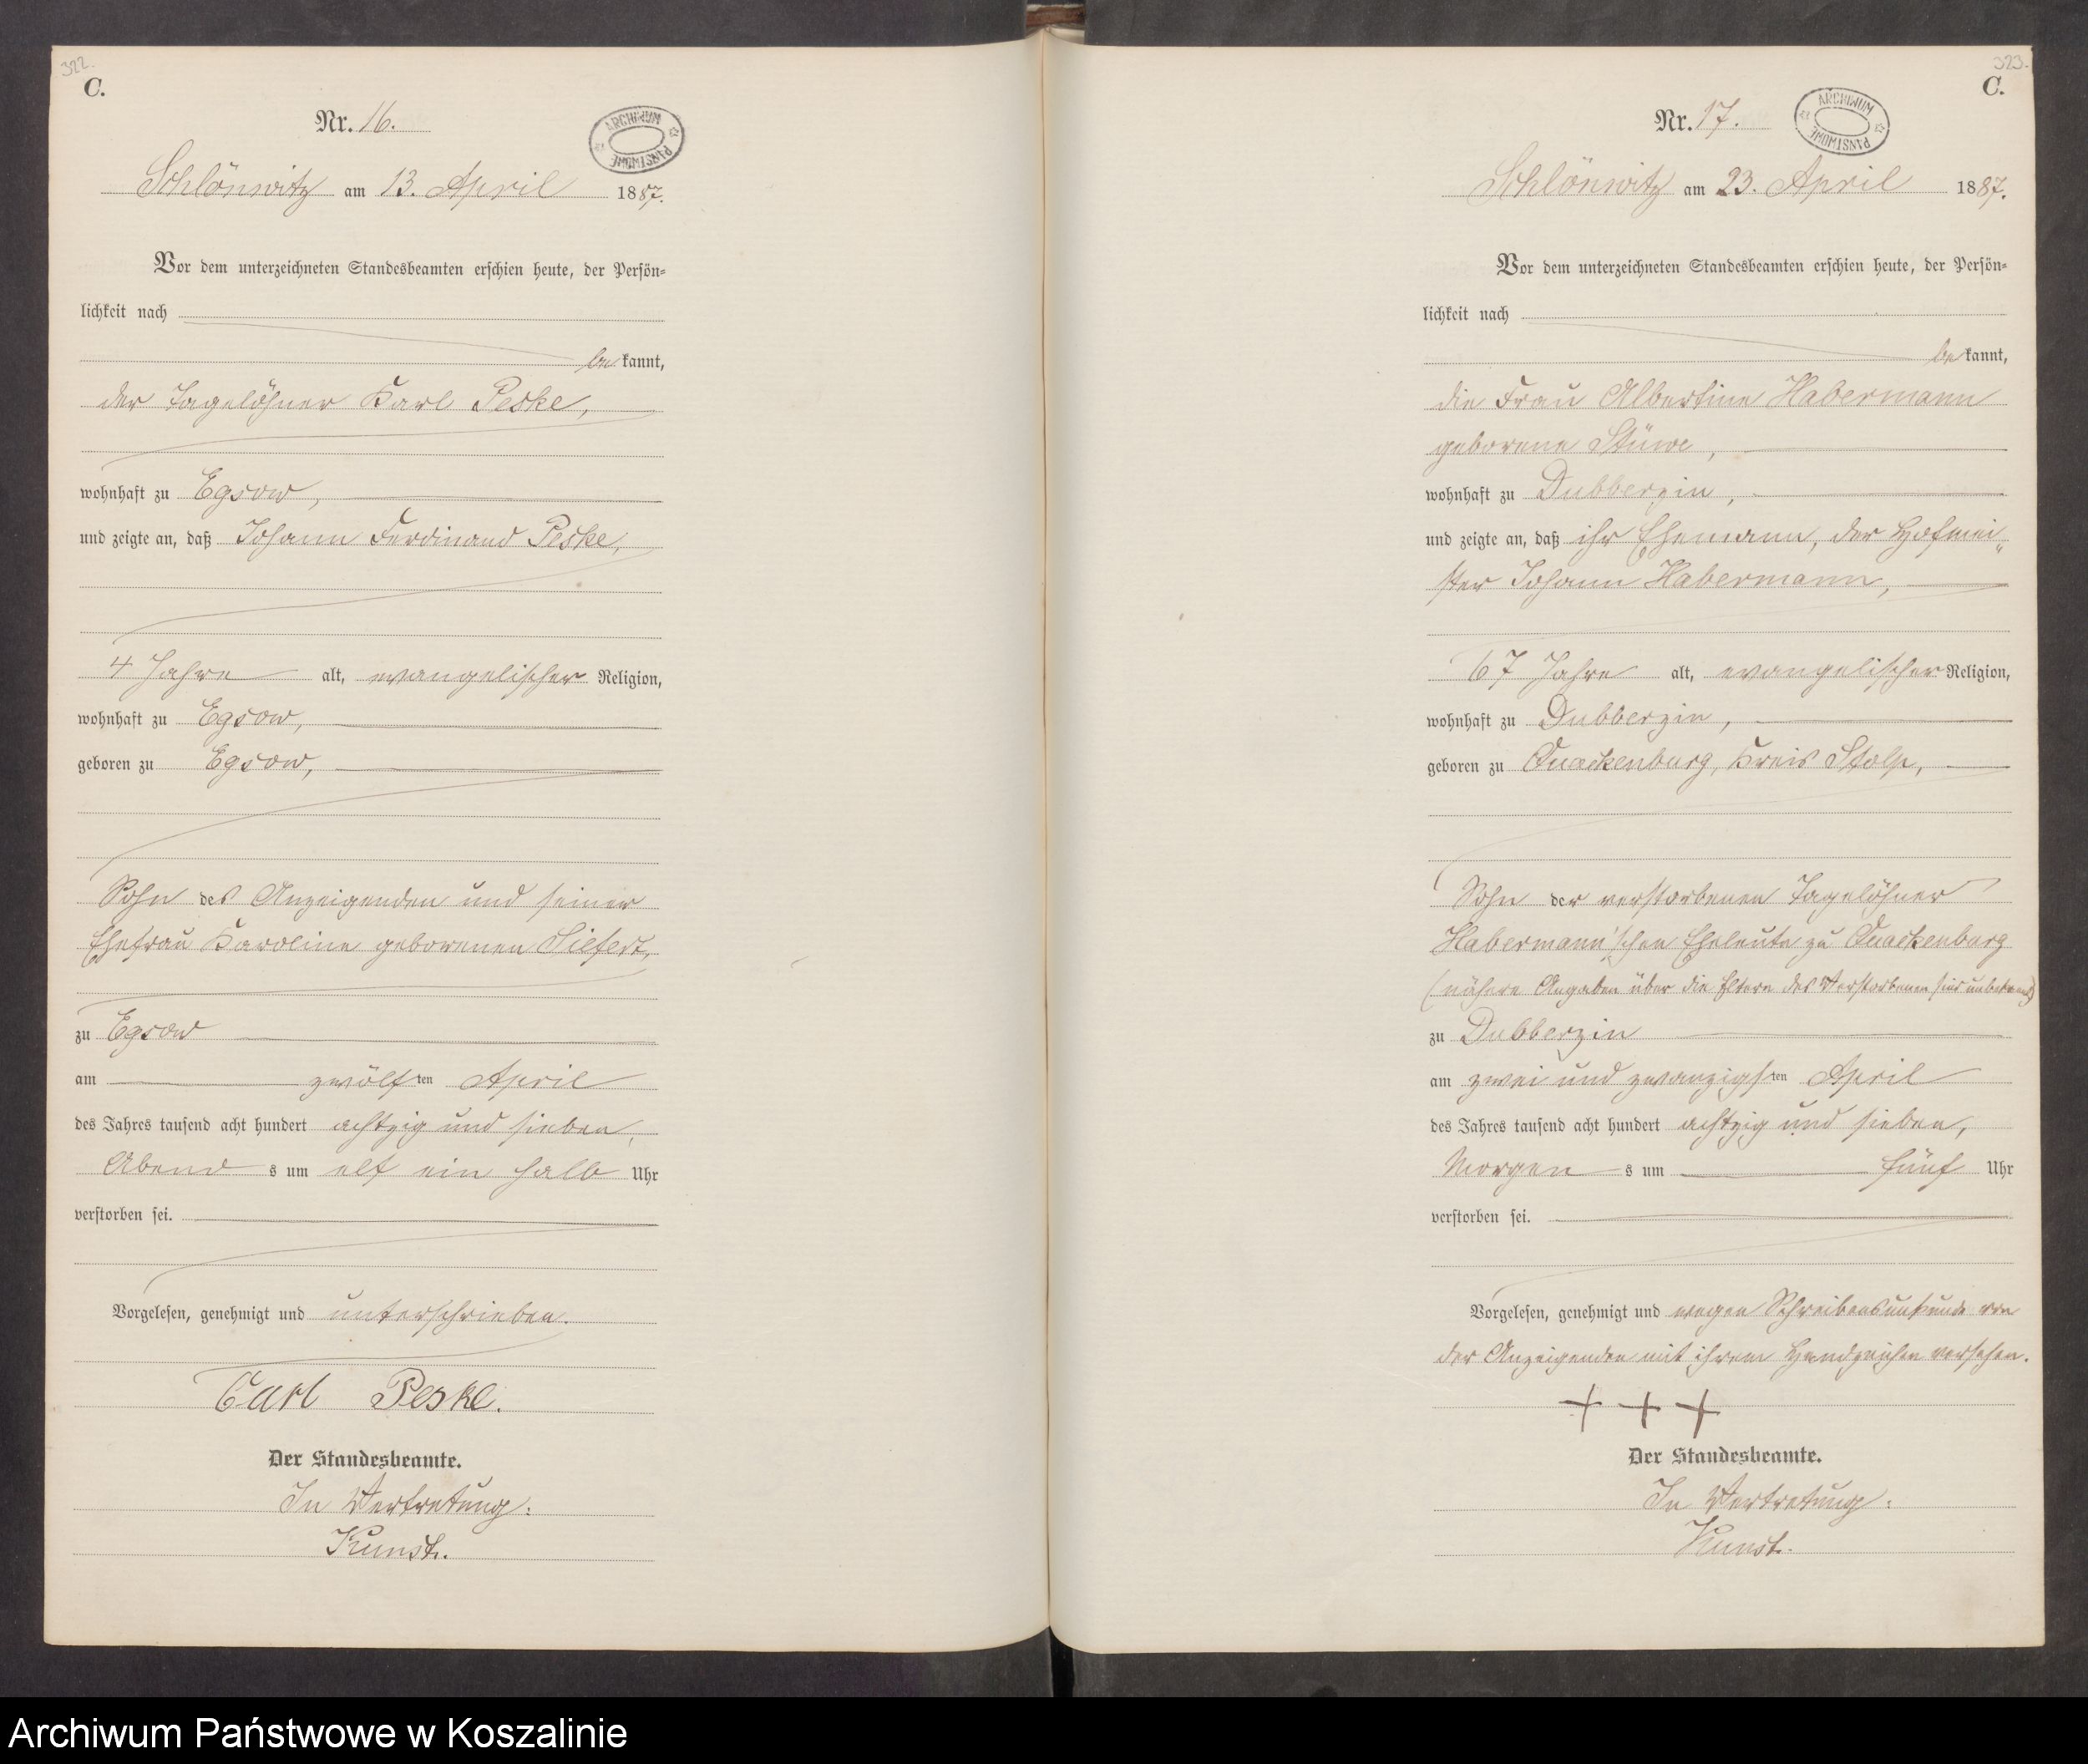 322.
C.
Nr. 16.
ARCHIWUM PAŃSTWOWE
Schlönwitz am 13. April 1887.
Vor dem unterzeichneten Standesbeamten erschien heute, der Persön=
lichkeit nach
bekannt,
der Tagelöhner Karl Peske,
wohnhaft zu Egsow,
und zeigte an, daß Johann Ferdinand Peske,
4 Jahre alt, evangelischer Religion,
wohnhaft zu Egsow,
geboren zu Egsow,
Sohn des Anzeigenden und seiner
Ehefrau Karoline geborenen Siefert,
zu Egsow
am zwölften April
des Jahres tausend acht hundert achtzig und sieben,
Abends um elf ein halb Uhr
verstorben sei.
Vorgelesen, genehmigt und unterschrieben.
Carl Peske.
Der Standesbeamte.
In Vertretung:
Kunst.
323.
C.
Nr. 17.
ARCHIWUM PAŃSTWOWE
Schlönwitz am 23. April 1887.
Vor dem unterzeichneten Standesbeamten erschien heute, der Persön=
lichkeit nach
bekannt,
die Frau Albertine Habermann
geborene Stüwe,
wohnhaft zu Dubberzin,
und zeigte an, daß ihr Ehemann, der Hofmei„
ster Johann Habermann,
67 Jahre alt, evangelischer Religion,
wohnhaft zu Dubberzin,
geboren zu Quackenburg, Kreis Stolp,
Sohn der verstorbenen Tagelöhner
Habermann'schen Eheleute zu Quackenburg
(nähere Angaben über die Eltern des Verstorbenen sind unbekannt)
zu Dubberzin
am zwei und zwanzigsten April
des Jahres tausend acht hundert achtzig und sieben,
Morgens um fünf Uhr
verstorben sei.
Vorgelesen, genehmigt und wegen Schreibensunkunde von
der Anzeigenden mit ihrem Handzeichen versehen.
+ + +
Der Standesbeamte.
In Vertretung:
Kunst.
Archiwum Państwowe w Koszalinie